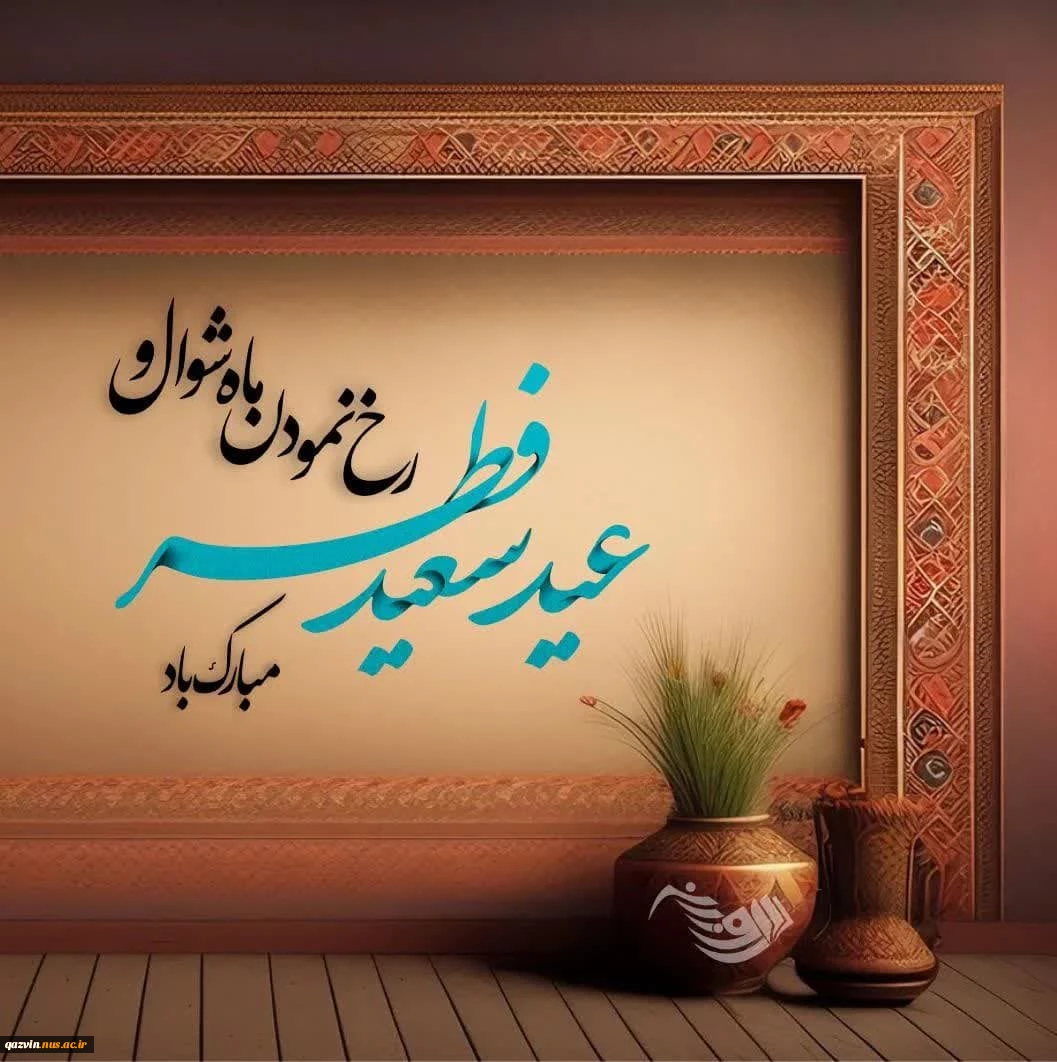 رخ نمودن ماه شوال و
عید سعید فطر
مبارک باد
qazvin.nus.ac.ir